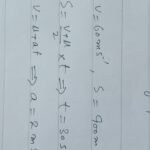 V=60ms⁻¹, S=900m
S = V+u/2 × t ⇒ t=30s
V=u+at ⇒ a=2m